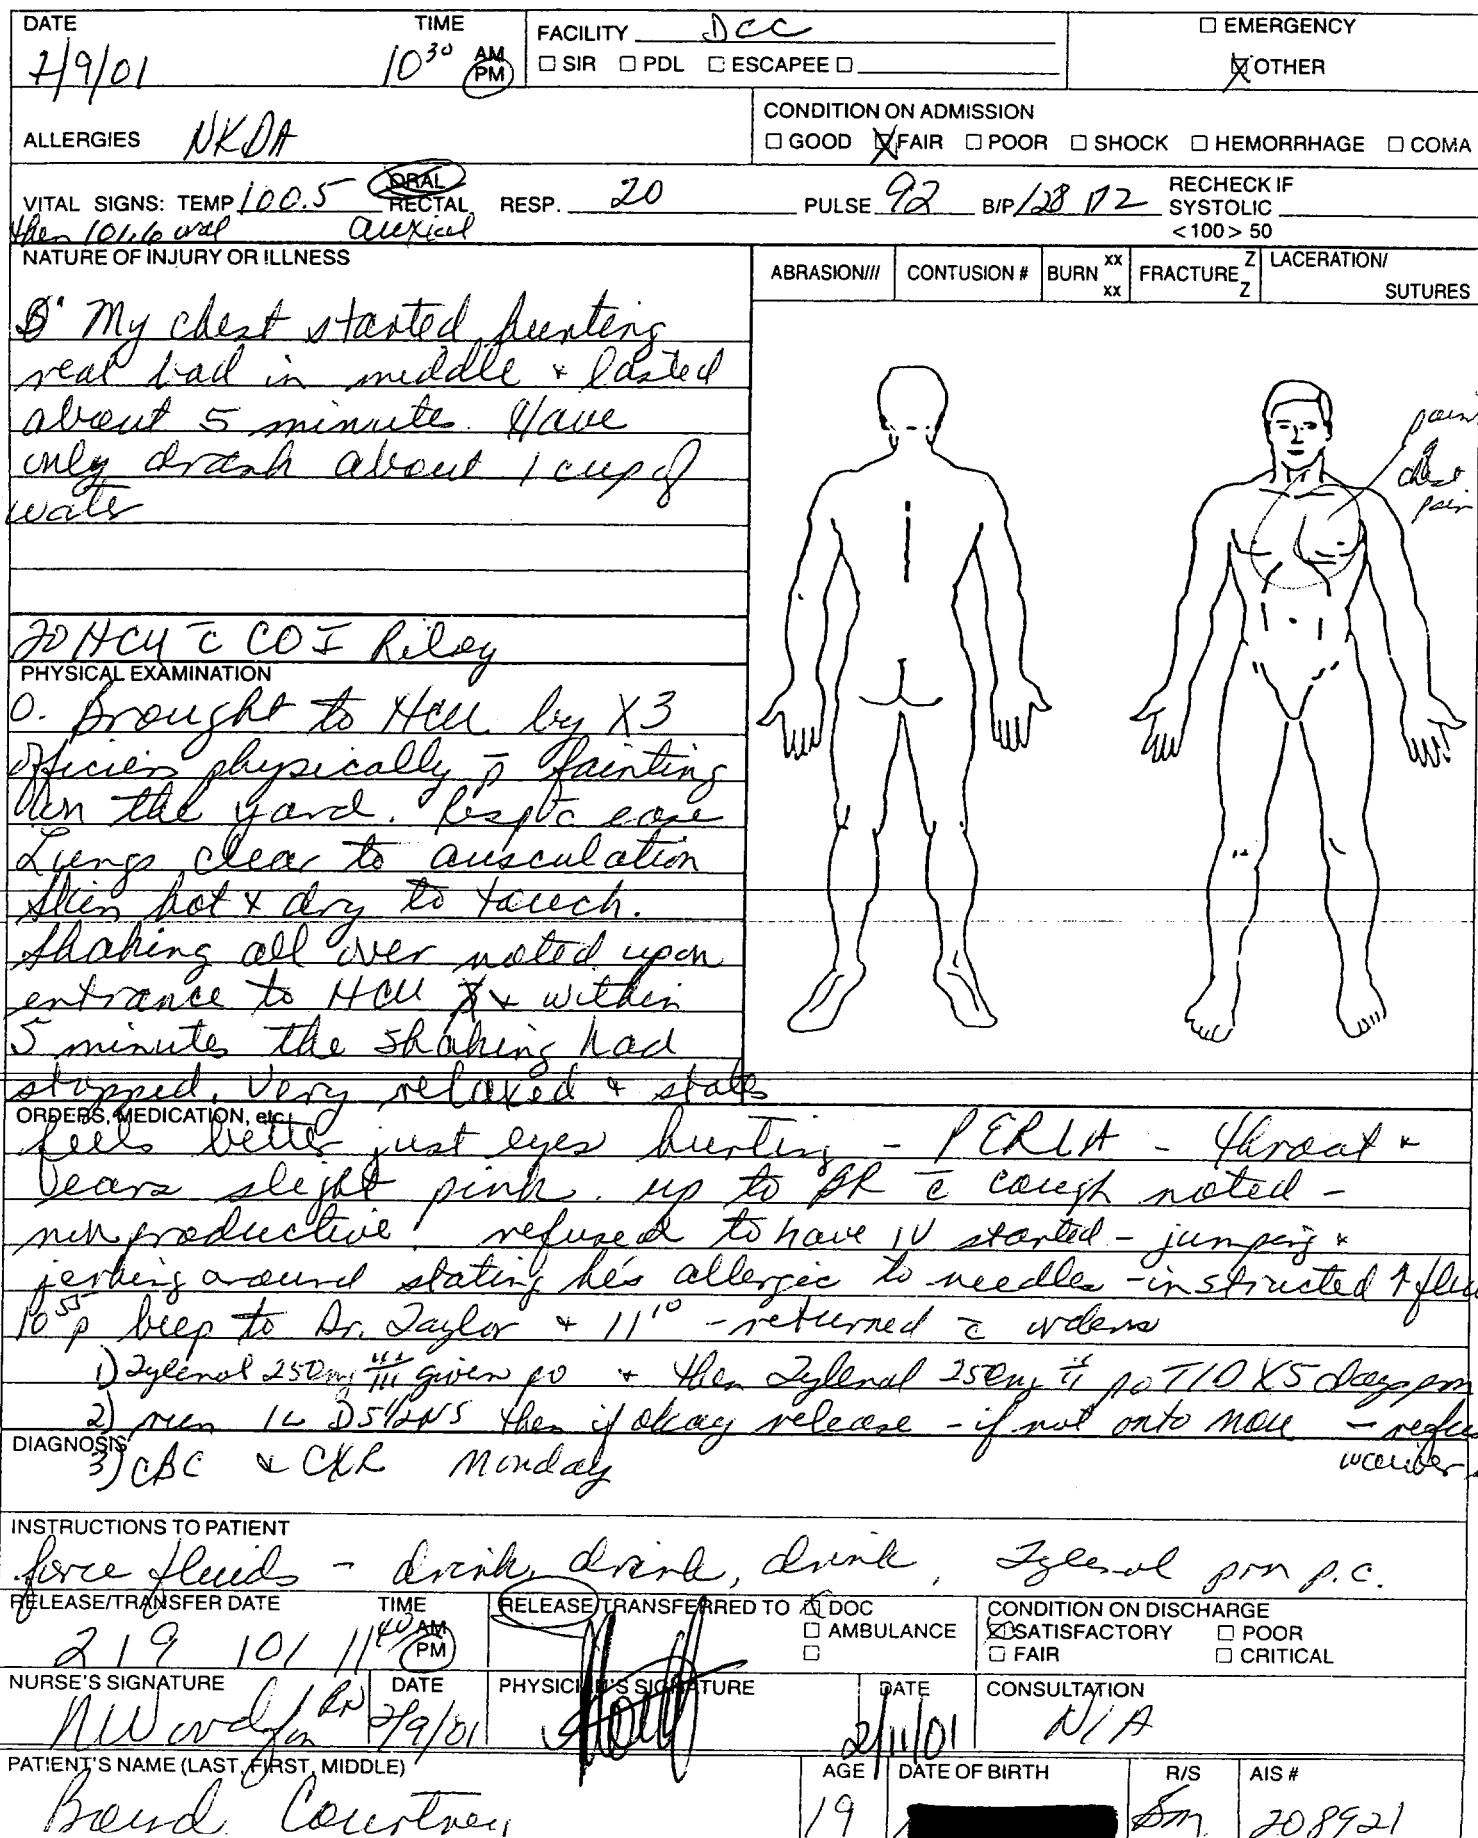 DATE TIME FACILITY DCC ☐ EMERGENCY
2/9/01 10³⁰ AM PM ☐ SIR ☐ PDL ☐ ESCAPEE ☐ ☒ OTHER
ALLERGIES NKDA CONDITION ON ADMISSION
☐ GOOD ☒ FAIR ☐ POOR ☐ SHOCK ☐ HEMORRHAGE ☐ COMA
VITAL SIGNS: TEMP 100.5 ORAL RECTAL RESP. 20 PULSE 92 B/P 128/72 RECHECK IF SYSTOLIC <100> 50
then 101.6 oral
NATURE OF INJURY OR ILLNESS
ABRASION/// CONTUSION # BURN xx xx FRACTURE Z Z LACERATION/ SUTURES
S "My chest started hurting
real bad in middle + lasted
about 5 minute. Have
only drank about 1 cup of
water
chest pain
To HCU c̄ COI Riley
PHYSICAL EXAMINATION
O. Brought to HCU by X3
officers physically p̄ fainting
on the yard. Resp c̄ ease
Lungs clear to ausculation
skin hot + dry to touch.
Shaking all over noted upon
entrance to HCU + within
5 minutes the shaking had
stopped. Very relaxed + states
ORDERS, MEDICATION, etc.
feels better just eyes hurting - PERLA - throat +
ears slight pink. up to BR c̄ cough noted -
nonproductive. refused to have IV started - jumping +
jerking around stating he's allergic to needles - instructed ↑
10⁵⁵ p beep to Dr. Taylor + 11¹⁰ - returned c̄ orders
1) Tylenol 250mg iii given po + then Tylenol 250mg ii po TID X5 days prn
2) run 1L D5½NS then if okay release - if not onto
DIAGNOSIS
3) CBC & CXR Monday
INSTRUCTIONS TO PATIENT
force fluids - drink, drink, drink, Tylenol prn p.c.
RELEASE/TRANSFER DATE TIME RELEASE/TRANSFERRED TO ☒ DOC CONDITION ON DISCHARGE
2 / 9 / 01 11⁴⁰ AM PM ☐ AMBULANCE ☒ SATISFACTORY ☐ POOR
☐ ☐ FAIR ☐ CRITICAL
NURSE'S SIGNATURE DATE PHYSICIAN'S SIGNATURE DATE CONSULTATION
RN 2/9/01 2/11/01 N/A
PATIENT'S NAME (LAST, FIRST, MIDDLE) AGE DATE OF BIRTH R/S AIS #
Courtney 19 208921